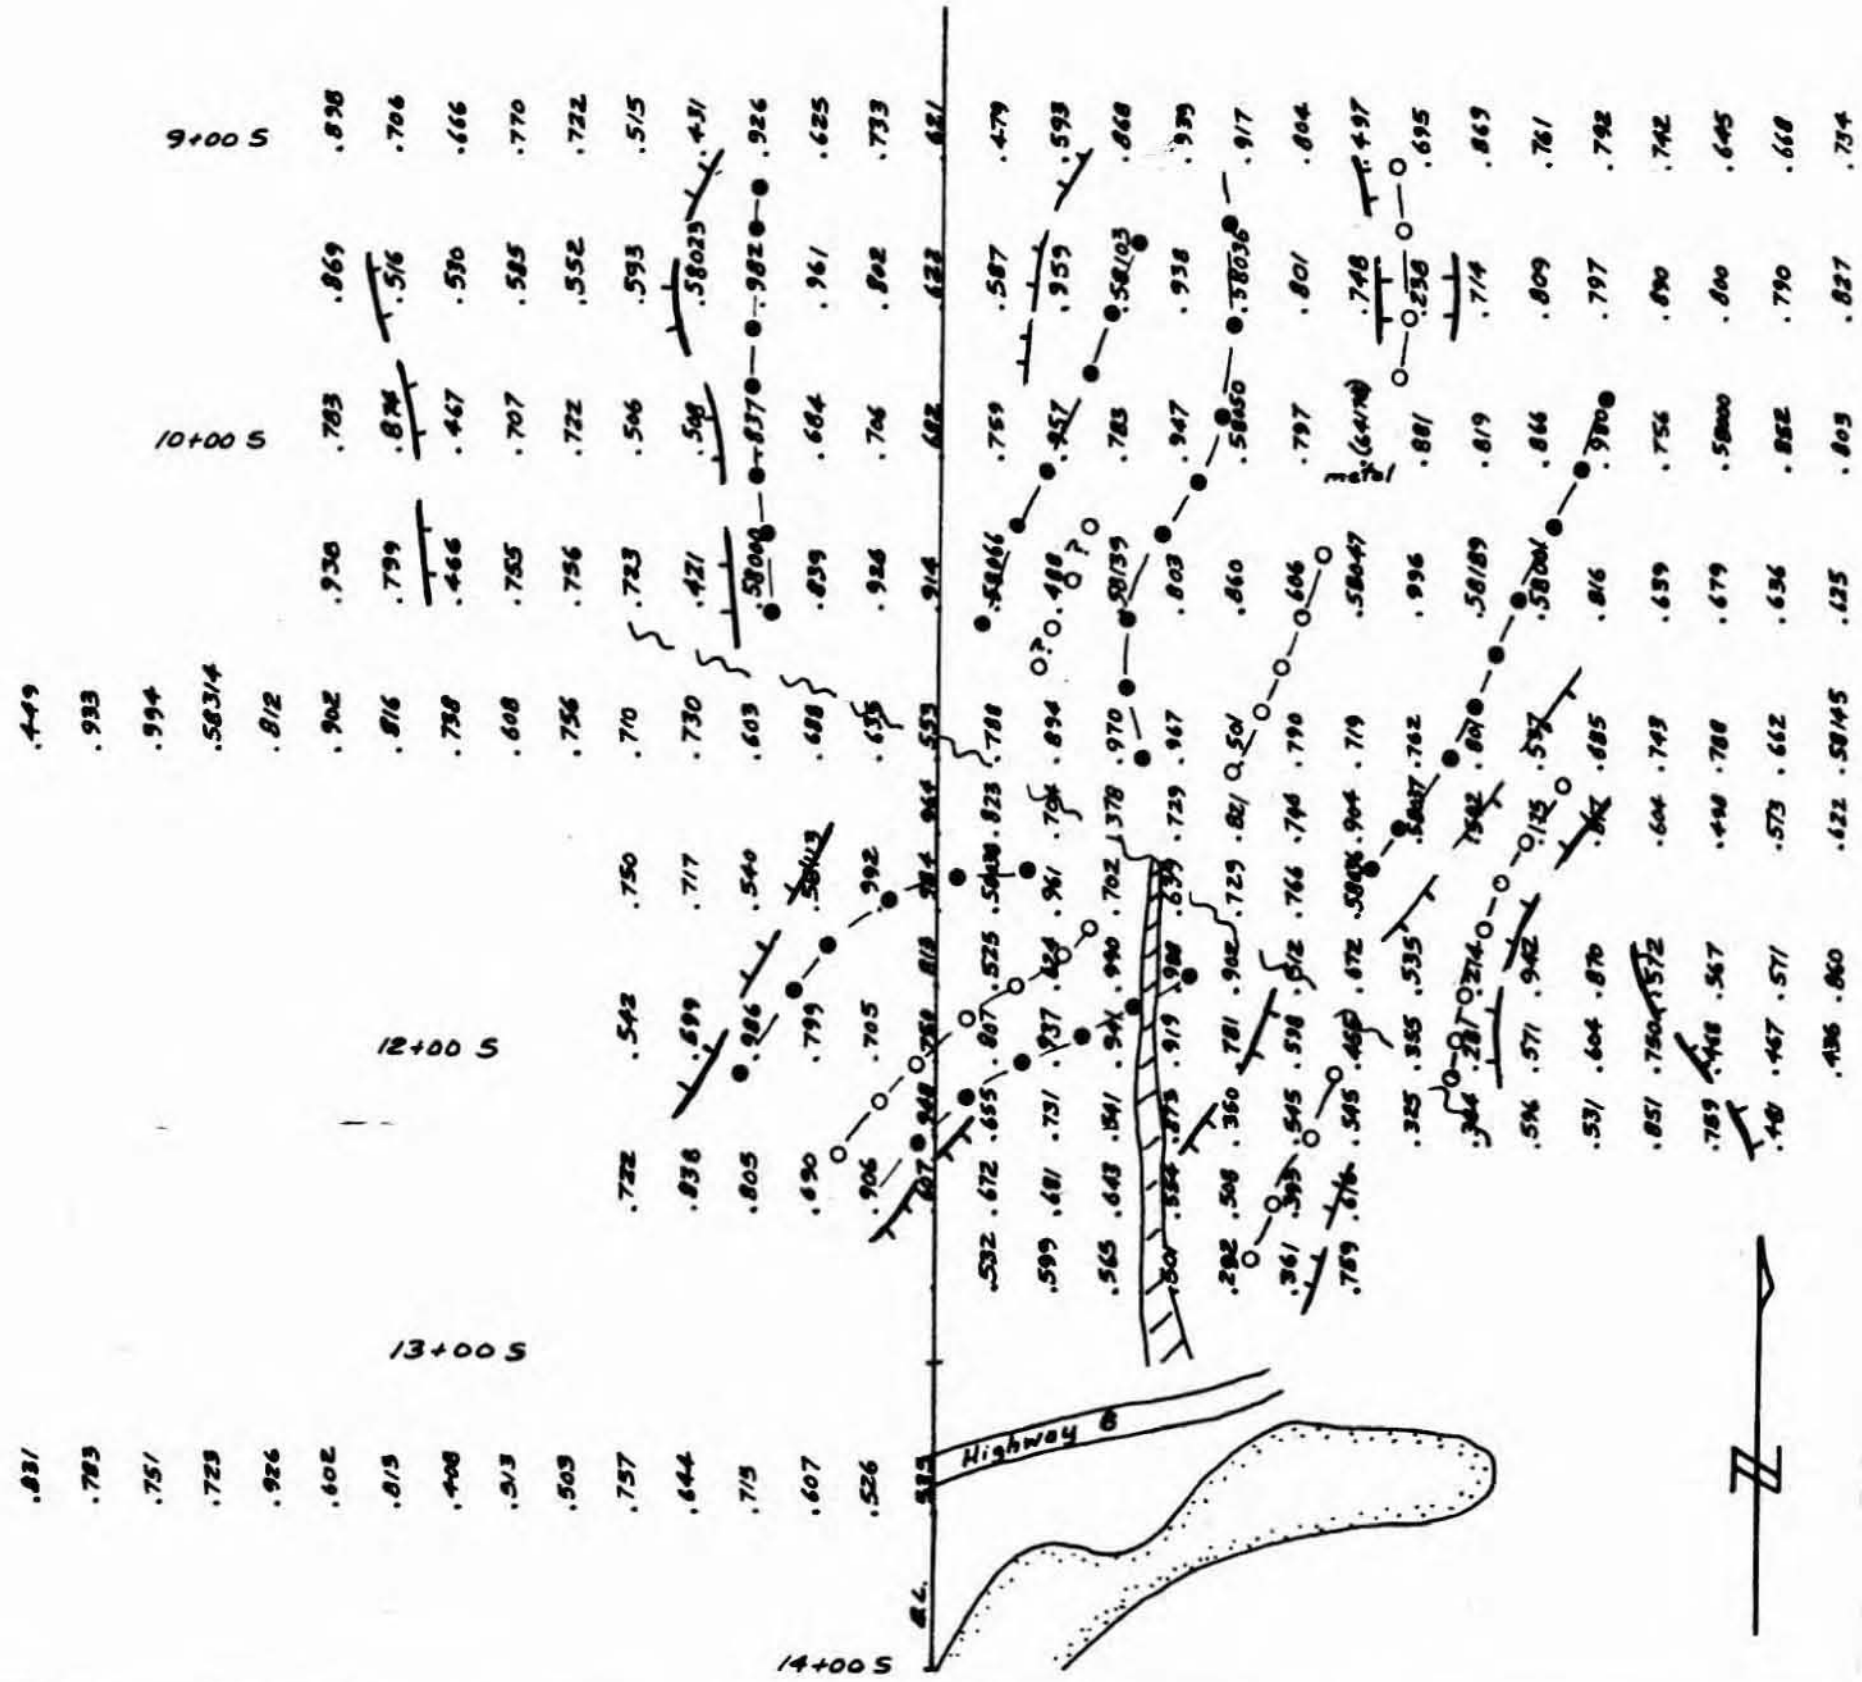 9+00 S
.898
.706
.666
.770
.722
.515
.431
.926
.625
.733
.621
.479
.593
.868
.939
.917
.804
.497
.695
.869
.761
.792
.742
.645
.668
.734
.869
.516
.530
.585
.552
.593
.58023
.982
.961
.802
.623
.587
.959
.58103
.938
.58036
.801
.748
.238
.714
.809
.797
.890
.800
.790
.827
10+00 S
.783
.874
.467
.707
.722
.506
.508
.837
.684
.706
.682
.759
.957
.783
.947
.58050
.797
metal
.881
.819
.866
.980
.756
.58000
.852
.803
.930
.799
.466
.755
.756
.723
.421
.58000
.839
.926
.914
.58066
.488
?
.58139
.803
.860
.606
.58047
.996
.58189
.58001
.816
.639
.679
.636
.625
?
.449
.933
.994
.58314
.812
.902
.816
.738
.608
.756
.710
.730
.603
.688
.635
.553
.788
.894
.970
.967
.501
.790
.719
.762
.801
.537
.685
.743
.788
.662
.58145
.964
.823
.704
.378
.729
.821
.746
.904
.58037
.125
.604
.498
.573
.622
.750
.717
.540
.58113
.992
.984
.961
.702
.639
.729
.766
.813
.525
.624
.990
.988
.902
.512
.672
.535
.274
.942
.870
.572
.567
.571
.860
12+00 S
.542
.699
.986
.799
.705
.758
.807
.937
.941
.919
.781
.598
.465
.355
.281
.571
.604
.750
.468
.467
.436
.948
.655
.731
.541
.873
.360
.545
.545
.325
.344
.596
.531
.851
.789
.481
.722
.838
.805
.690
.906
.607
.672
.681
.643
.554
.508
.393
.676
.532
.599
.565
.501
.292
.361
.789
13+00 S
Highway 6
.831
.783
.751
.723
.926
.602
.813
.408
.513
.503
.757
.644
.713
.607
.526
B.L.
14+00 S
N